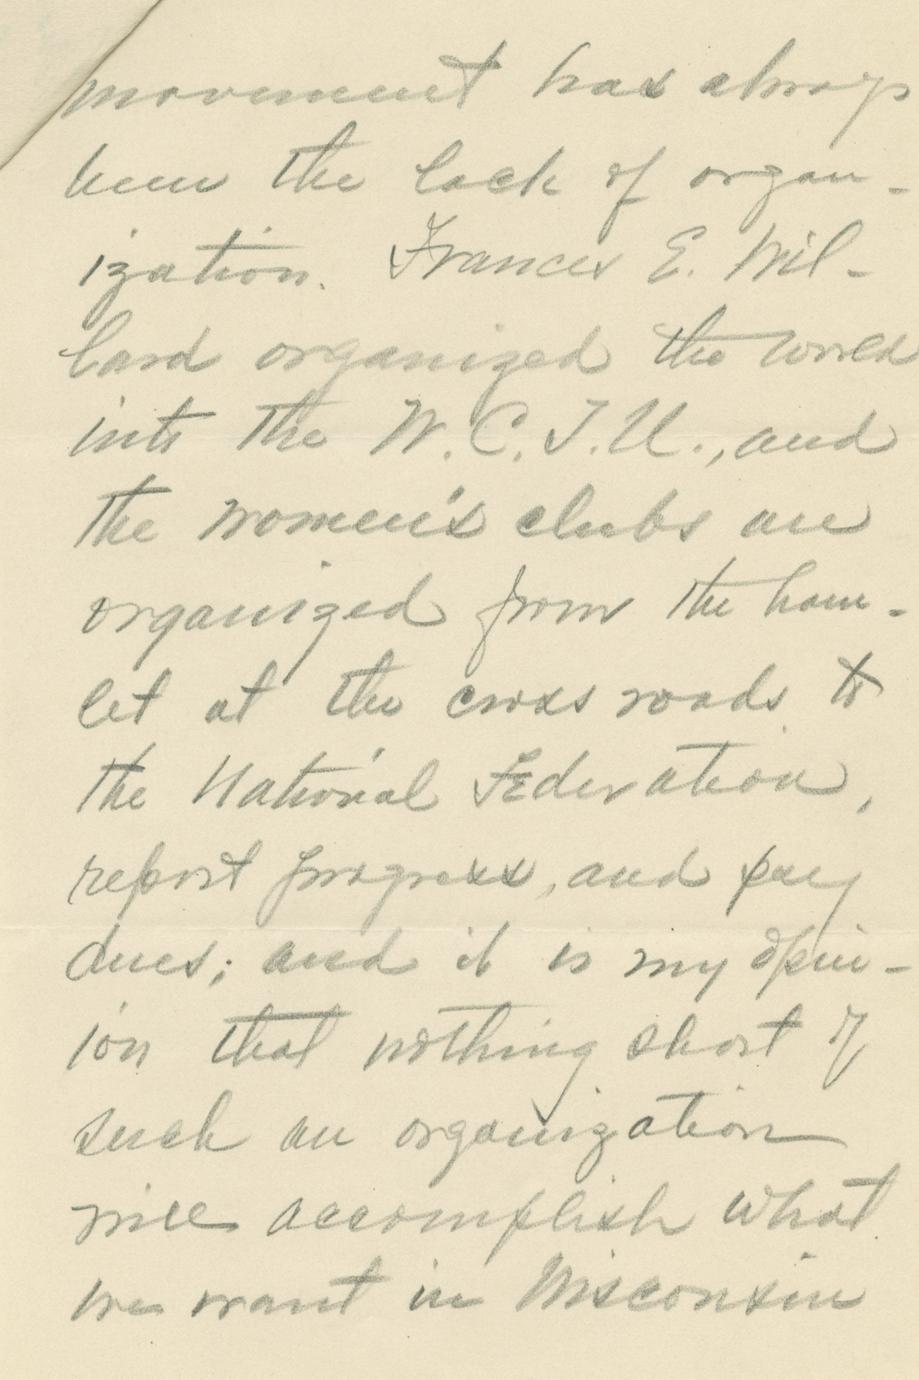 movement has always
been the lack of organ-
ization. Frances E. Wil-
lard organized the world
into the W.C.T.U., and
the women's clubs are
organized from the ham-
let at the cross roads to
the National Federation,
report progress, and pay
dues; and it is my opin-
ion that nothing short of
such an organization
will accomplish what
we want in Wisconsin